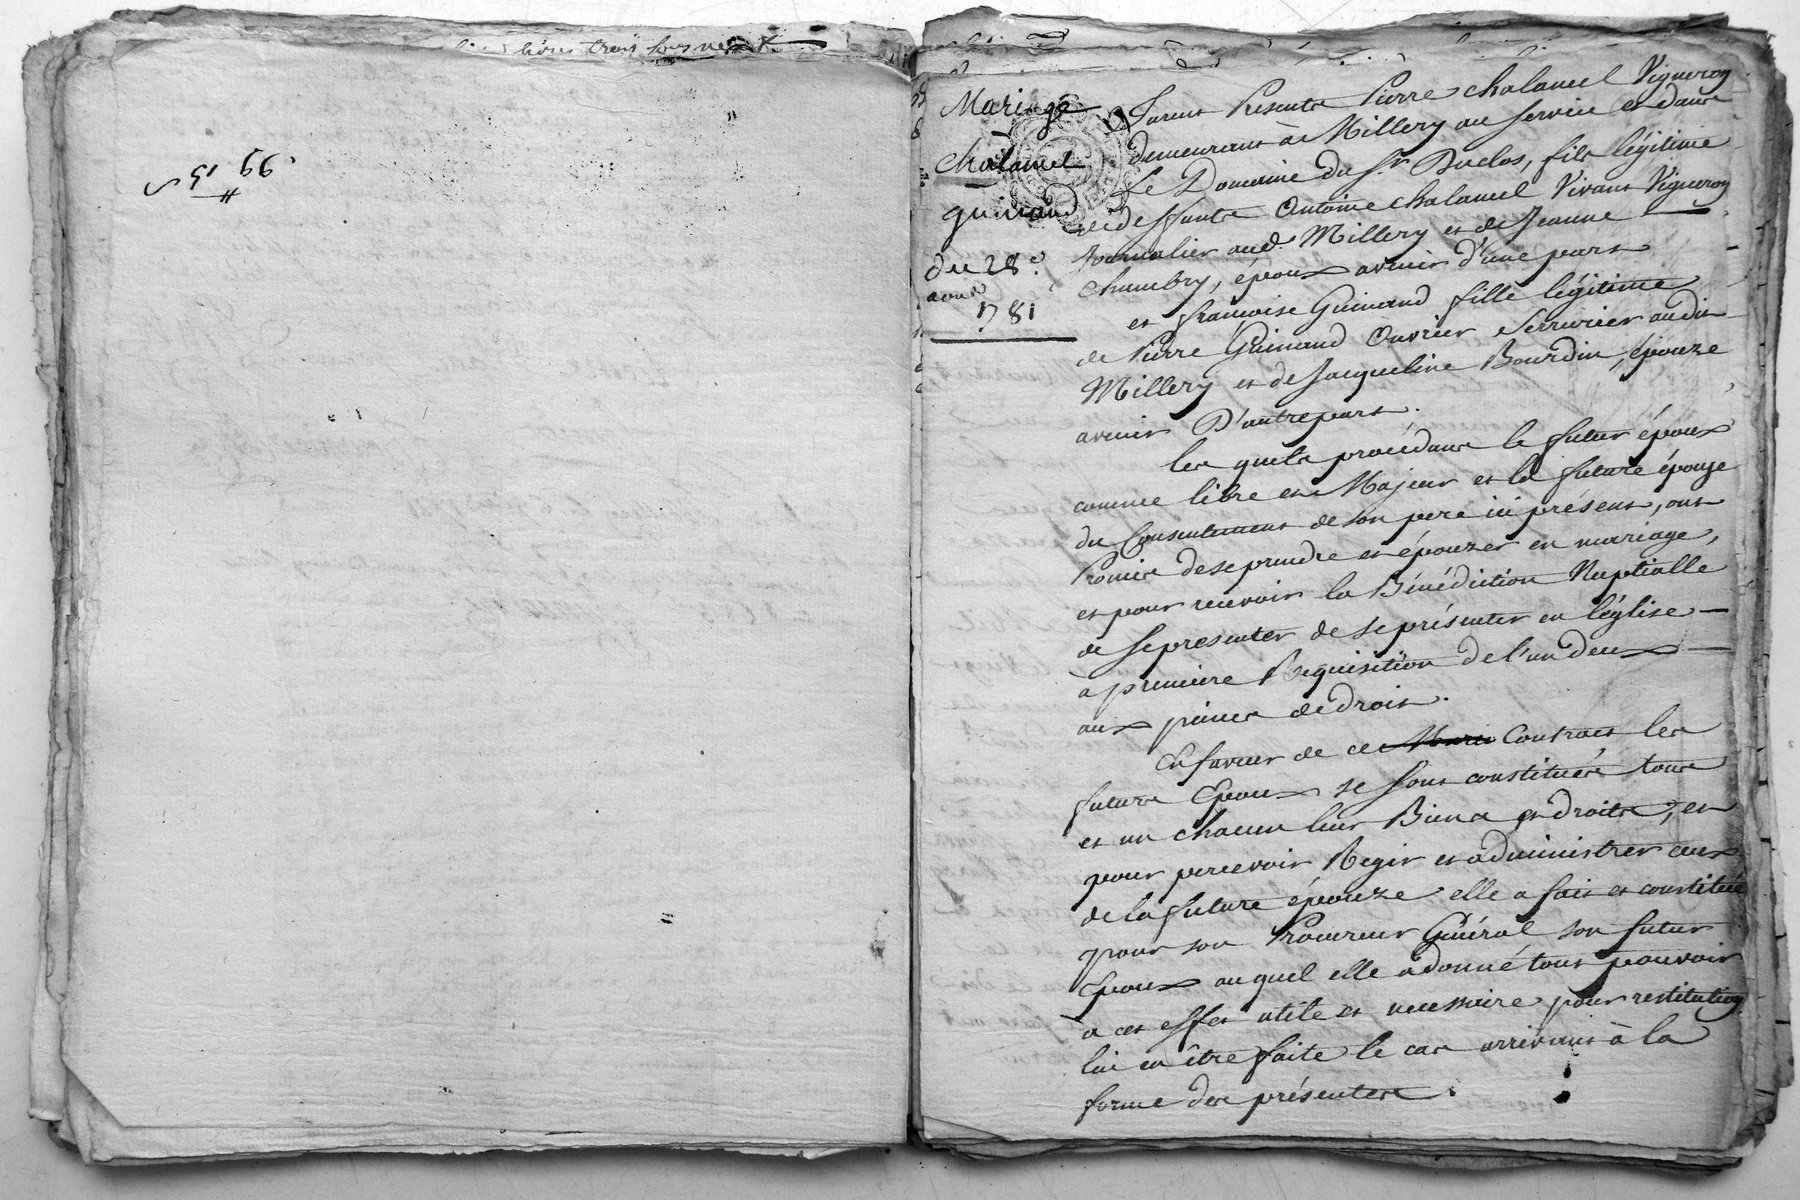 livres trois sous neuf
Mariage
Chalamel
guinand
du 28e.
aoust
1781
Furent Présents Pierre Chalamel Vigneron
demeurant à Millery au service et dans
Le Domaine du Sr. Duclos, fils légitime
de deffunts Antoine Chalamel Vivant Vigneron
Journalier aud. Millery et de Jeanne
Chambry, époux avenir d'une part
et françoise Guinand fille légitime
de Pierre Guinand Ouvrier Serrurier audit
Millery et de Jacqueline Bourdin, épouze
avenir D'autre part.
les quels procédans le futur époux
comme libre et Majeur et la future épouze
du Consentement de son pere ici présent, ont
Promis de se prendre et épouzer en mariage,
et pour recevoir la Bénédiction Nuptialle
de se presenter de se présenter en l'église
à premiere Requisition de l'un deux
aux peines de droit.
En faveur de ce Contract les
futurs Epoux se sont constitués tous
et un chacun leurs Biens et droits, et
pour percevoir Regir et administrer ceux
de la future épouze elle a fait et constitué
pour son Procureur Général son futur
Epoux auquel elle a donné tout pouvoir
à cet effet utile et necessaire pour restitution
lui en être faite le cas arrivant à la
forme des présentes.